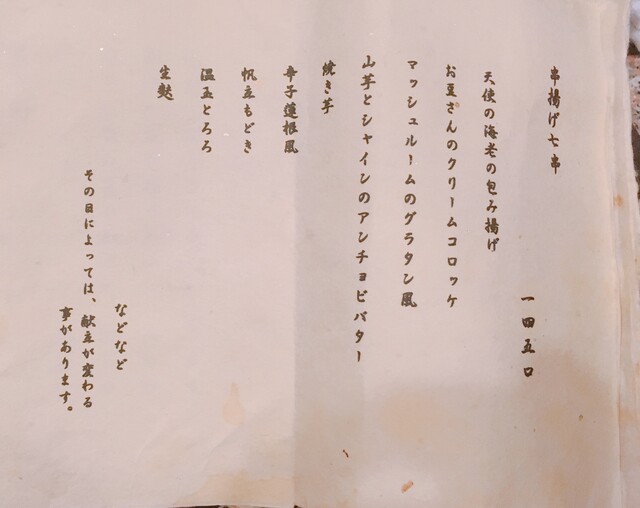 串揚げ七串
一四五〇
天使の海老の包み揚げ
お豆さんのクリームコロッケ
マッシュルームのグラタン風
山芋とシャインのアンチョビバター
焼き芋
辛子蓮根風
帆立もどき
温玉とろろ
生麩
などなど
その日によっては、献立が変わる
事があります。